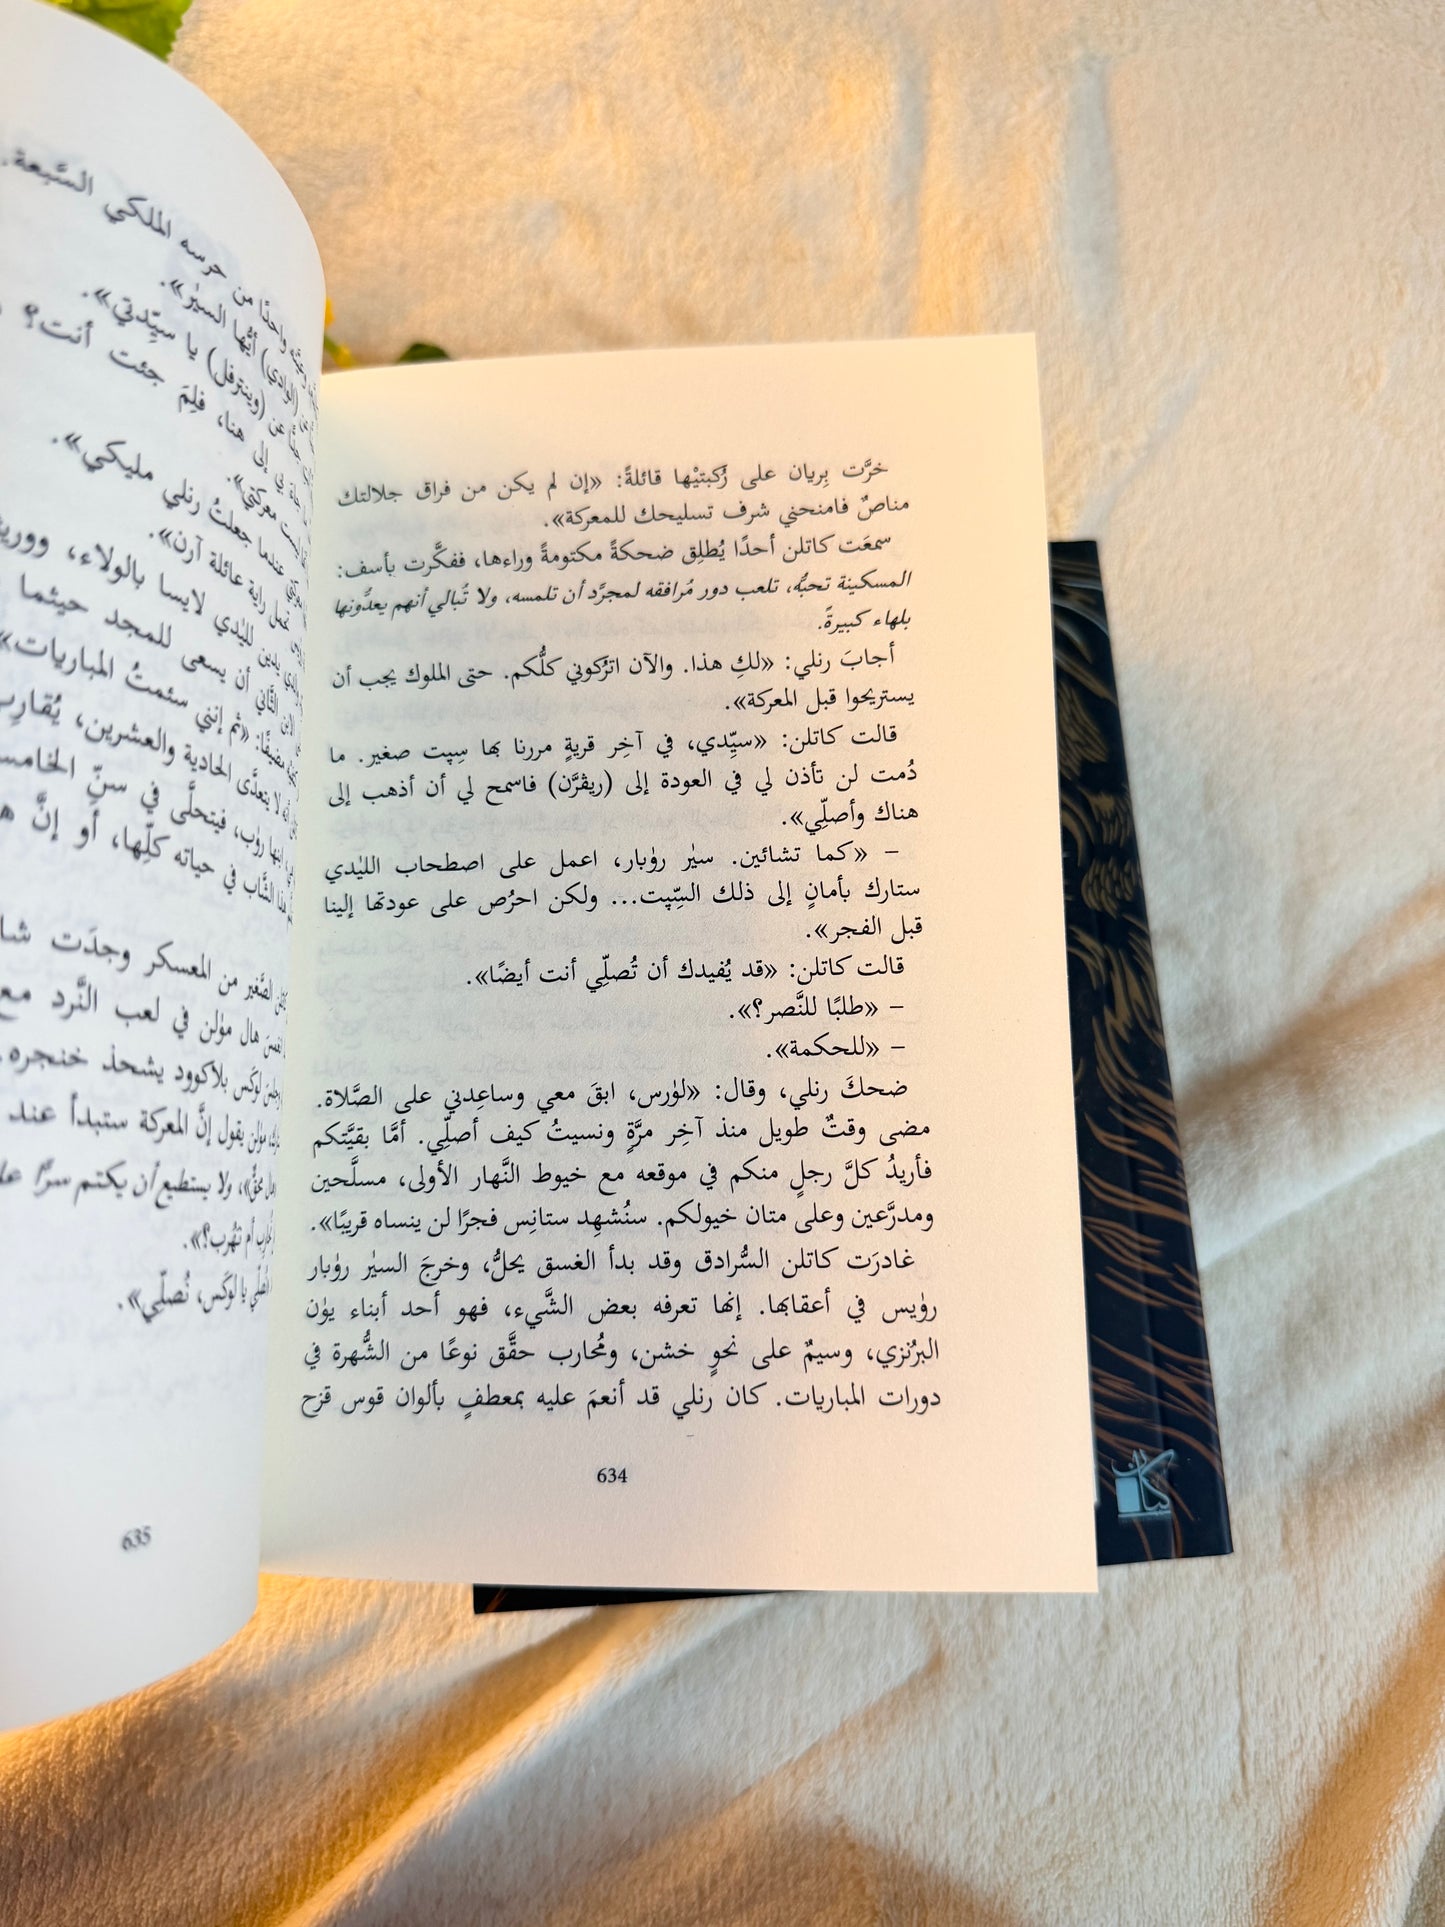 خرَّت بِريان على رُكبتيْها قائلةً: «إن لم يكن من فراق جلالتك
مناصٌ فامنحني شرف تسليحك للمعركة».
سمعَت كاتلن أحدًا يُطلِق ضحكةً مكتومةً وراءها، ففكَّرت بأسف:
المسكينة تحبُّه، تلعب دور مُرافقه لمجرَّد أن تلمسه، ولا تُبالي أنهم يعدُّونها
بلهاء كبيرةً.
أجابَ رنلي: «لكِ هذا. والآن اترُكوني كلُّكم. حتى الملوك يجب أن
يستريحوا قبل المعركة».
قالت كاتلن: «سيِّدي، في آخِر قريةٍ مررنا بها سِپت صغير. ما
دُمت لن تأذن لي في العودة إلى (ريڤرَّن) فاسمح لي أن أذهب إلى
هناك وأصلِّي».
– «كما تشائين. سيٰر روٰبار، اعمل على اصطحاب الليْدي
ستارك بأمانٍ إلى ذلك السِّپت... ولكن احرُص على عودتها إلينا
قبل الفجر».
قالت كاتلن: «قد يُفيدك أن تُصلِّي أنت أيضًا».
– «طلبًا للنَّصر؟».
– «للحكمة».
ضحكَ رنلي، وقال: «لوٰرس، ابقَ معي وساعِدني على الصَّلاة.
مضى وقتٌ طويل منذ آخِر مرَّةٍ ونسيتُ كيف أصلِّي. أمَّا بقيَّتكم
فأريدُ كلَّ رجلٍ منكم في موقعه مع خيوط النَّهار الأولى، مسلَّحين
ومدرَّعين وعلى متان خيولكم. سنُشهِد ستانِس فجرًا لن ينساه قريبًا».
غادرَت كاتلن السُّرادق وقد بدأ الغسق يحلُّ، وخرجَ السيٰر روٰبار
روٰيس في أعقابها. إنها تعرفه بعض الشَّيء، فهو أحد أبناء يوٰن
البرُنزي، وسيمٌ على نحوٍ خشن، ومُحارب حقَّق نوعًا من الشُّهرة في
دورات المباريات. كان رنلي قد أنعمَ عليه بمعطفٍ بألوان قوس قزح
634
من حرسه الملكي السَّبعة.
(الوادي) أيُّها السيٰر».
عن (وينترفل) يا سيِّدتي».
إلى هنا، فلِمَ جئت أنت؟
معركتي».
عندما جعلتُ رنلي مليكي».
راية عائلة آرن».
يدين لليْدي لايسا بالولاء،
أن يسعى للمجد حيثما
«ثم إنني سئمتُ المباريات»
لا يتعدَّى الحادية والعشرين،
فيتحلَّى في سنِّ
الشَّاب في حياته كلِّها، أو إنَّ
الصَّغير من المعسكر وجدَت
هال موٰلن في لعب النَّرد مع
لوكَس بلاكوود يشحذ خنجره
يقول إنَّ المعركة ستبدأ عند
ولا يستطيع أن يكتم سرًّا
أم نهرب؟».
يا لوكَس، نُصلِّي».
635
كيان